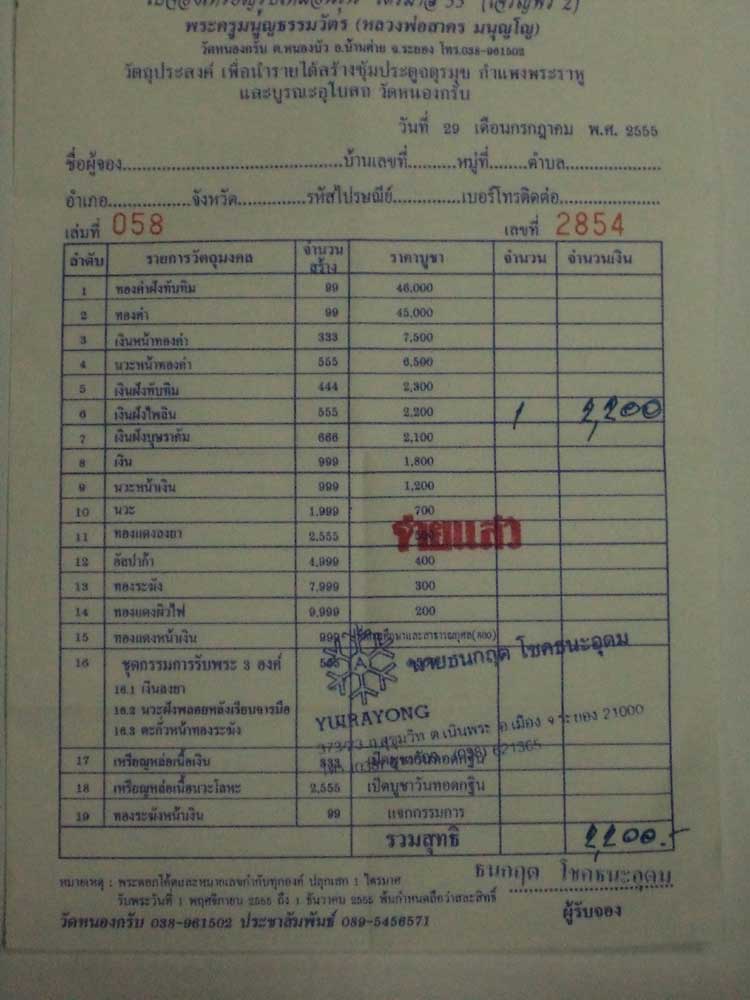 พระครูมนูญธรรมวัตร (หลวงพ่อสาคร มนุญโญ)
วัดหนองกรับ ต.หนองบัว อ.บ้านค่าย จ.ระยอง โทร.038-961502
วัตถุประสงค์ เพื่อนำรายได้สร้างซุ้มประตูจตุรมุข กำแพงพระราหู
และบูรณะอุโบสถ วัดหนองกรับ
วันที่ 29 เดือนกรกฎาคม พ.ศ. 2555
ชื่อผู้จอง............บ้านเลขที่.........หมู่ที่........ตำบล............
อำเภอ............จังหวัด............รหัสไปรษณีย์............เบอร์โทรติดต่อ............
เล่มที่ 058 เลขที่ 2854
ลำดับ รายการวัตถุมงคล จำนวนสร้าง ราคาบูชา จำนวน จำนวนเงิน
1 ทองคำฝังทับทิม 99 46,000
2 ทองคำ 99 45,000
3 เงินหน้าทองคำ 333 7,500
4 นวะหน้าทองคำ 555 6,500
5 เงินฝังทับทิม 444 2,300
6 เงินฝังไพลิน 555 2,200 1 2,200
7 เงินฝังบุษราคัม 666 2,100
8 เงิน 999 1,800
9 นวะหน้าเงิน 999 1,200
10 นวะ 1,999 700
11 ทองแดงลงยา 2,555
จ่ายแล้ว
12 อัลปาก้า 4,999 400
13 ทองระฆัง 7,999 300
14 ทองแดงผิวไฟ 9,999 200
15 ทองแดงหน้าเงิน 999
16 ชุดกรรมการรับพระ 3 องค์
นายธนกฤต โชคธนะอุดม
16.1 เงินลงยา
16.2 นวะฝังพลอยหลังเรียบจารมือ
16.3 ตะกั่วหน้าทองระฆัง
A
YUIRAYONG
373/73 ถ.สุขุมวิท ต.เนินพระ อ.เมือง จ.ระยอง 21000
(038) 621365
17 เหรียญหล่อเนื้อเงิน 333 เปิดบูชาวันทอดกฐิน
18 เหรียญหล่อเนื้อนวะโลหะ 2,555 เปิดบูชาวันทอดกฐิน
19 ทองระฆังหน้าเงิน 99 แจกกรรมการ
รวมสุทธิ 2,200.-
หมายเหตุ : พระตอกโค๊ตและหมายเลขกำกับทุกองค์ ปลุกเสก 1 ไตรมาศ
ธนกฤต โชคธนะอุดม
รับพระวันที่ 1 พฤศจิกายน 2555 ถึง 1 ธันวาคม 2555 พ้นกำหนดถือว่าสละสิทธิ์
วัดหนองกรับ 038-961502 ประชาสัมพันธ์ 089-5456571
ผู้รับจอง